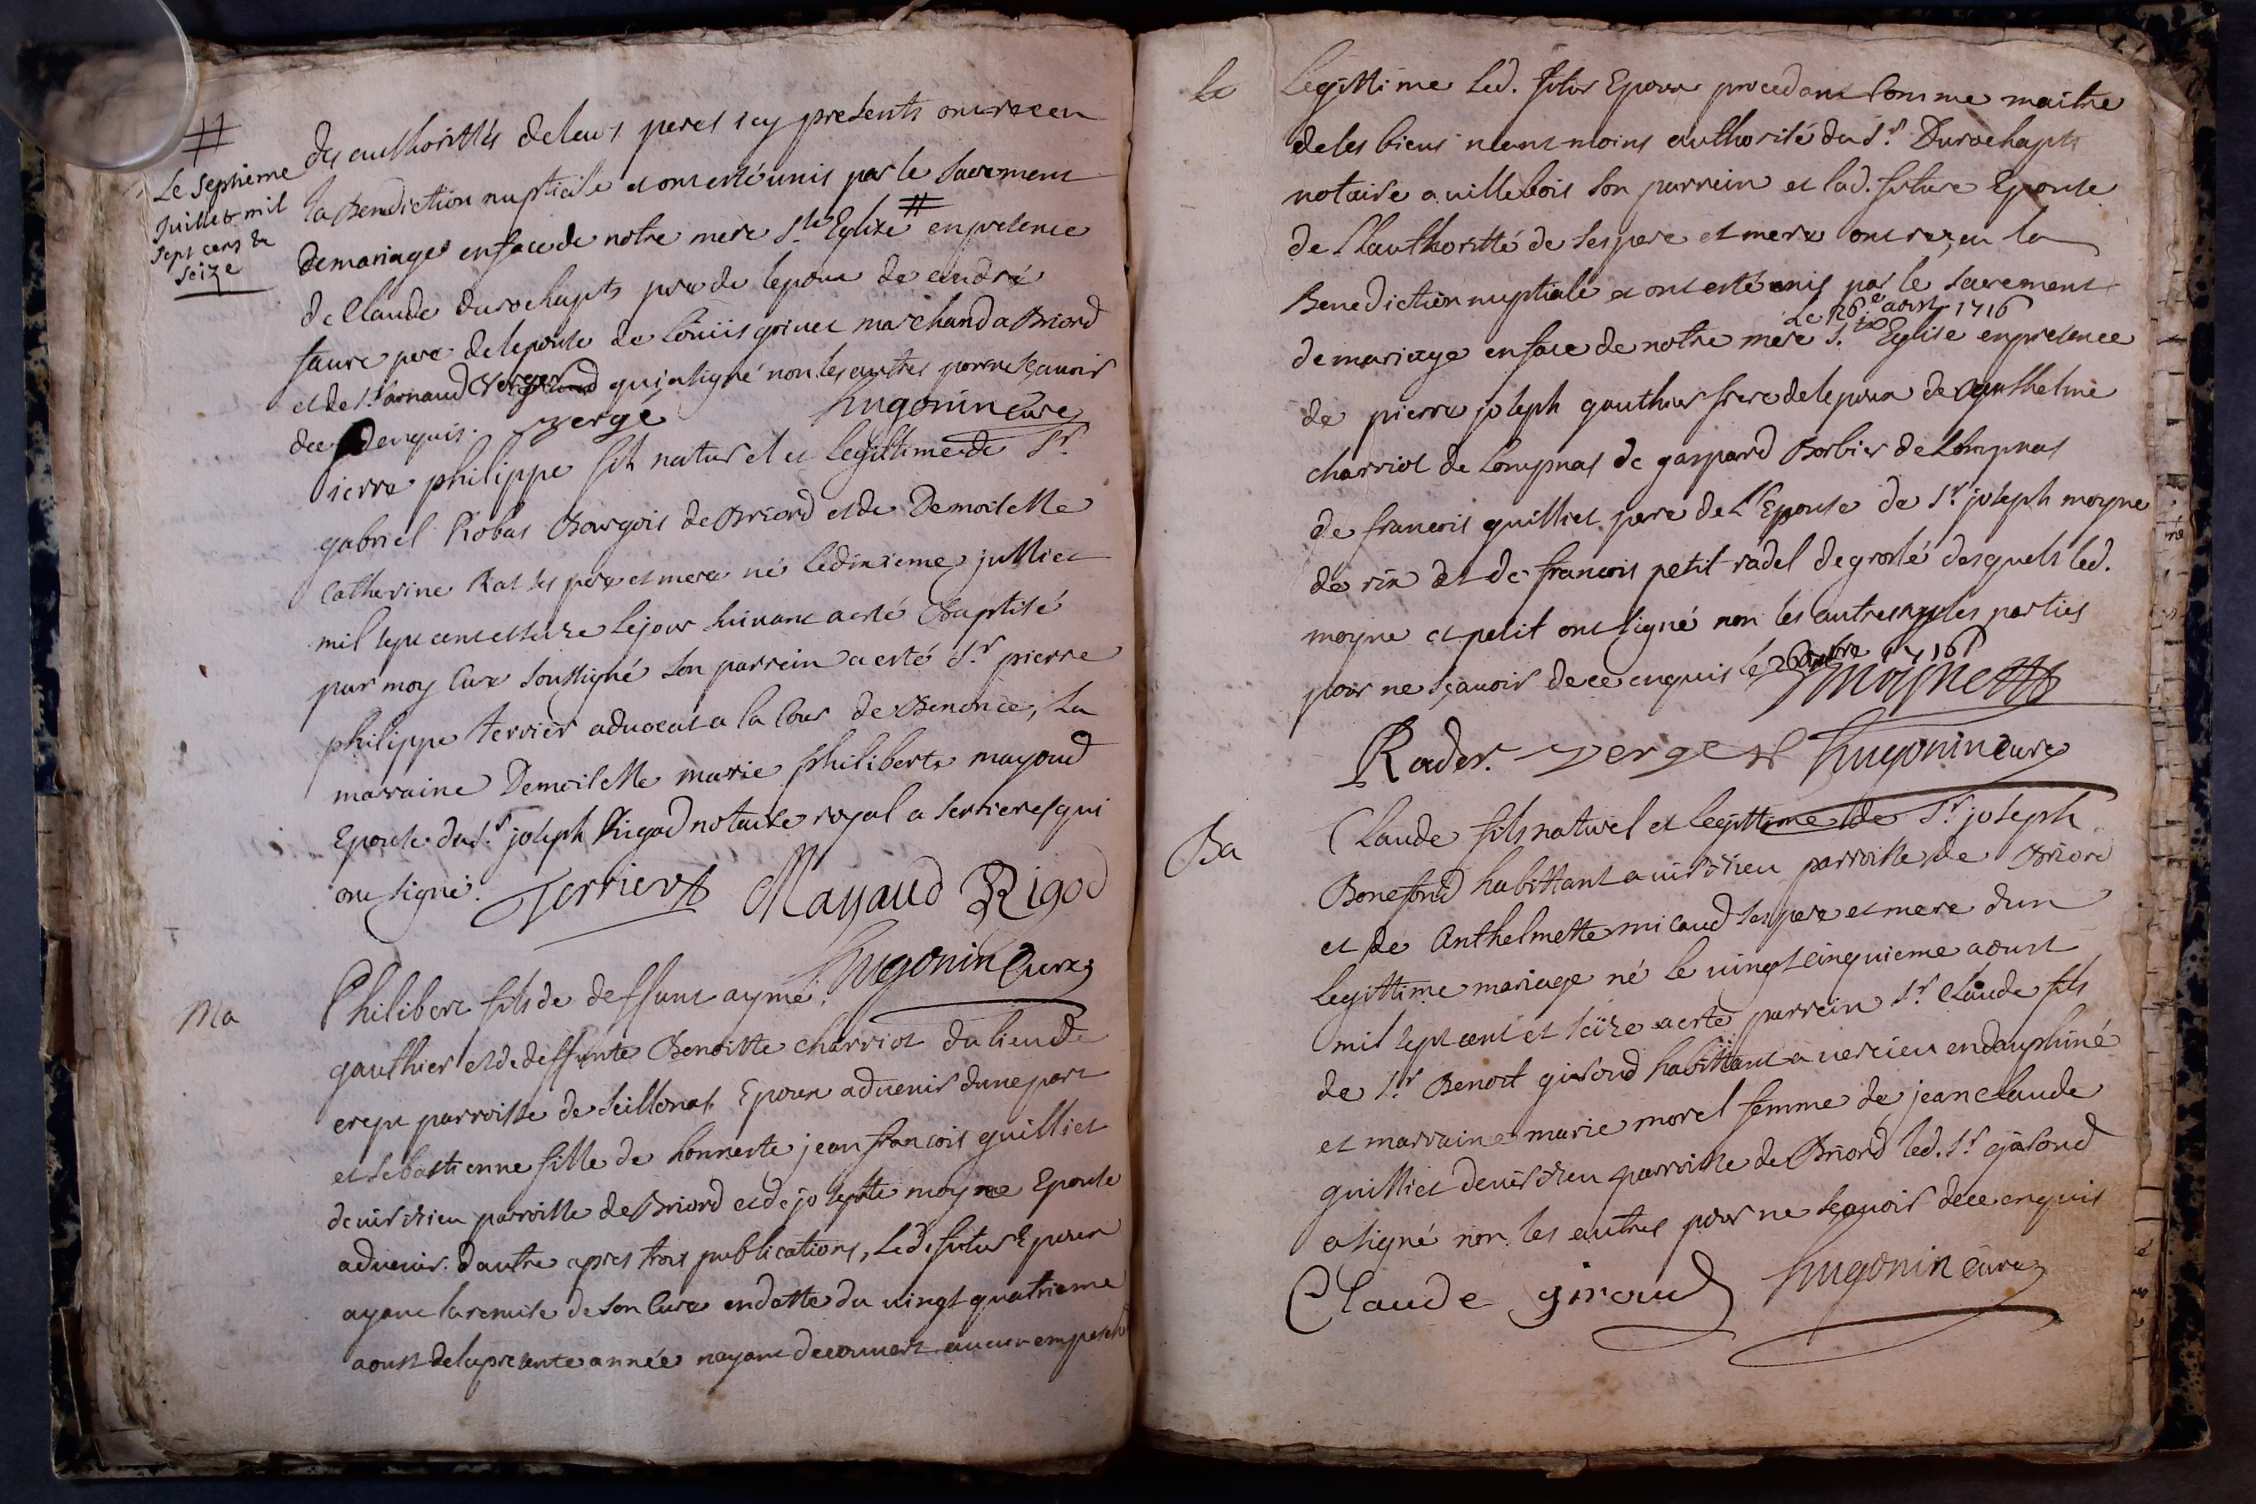 #
Le septieme
Juillet mil
sept cens &
seize
des authorittés de leurs peres icy presents ont receu
la Benediction nuptiale et ont esté unis par le sacrement
de mariage en face de notre mere S.te Eglize # en presence
de Claude Durochapts pere de lepoux de andré
faure pere de lepouse de Louiis grinet marchand a Briord
et de S.r arnaud verger qui a signé non les autres pour ne sçavoir
de ce enquis. verge hugonin Curé
pierre philippe fils naturel et legittime de S.r
gabriel Robas Bourgois de Briord et de Demoiselle
Catherine Rat ses pere et mere né le dixieme julliet
mil sept cent et seize le jour suivant a esté Baptisé
par moy Curé soussigné son parrein a esté S.r pierre
philippe terrier advocat a la Cour de Benonce, La
marraine Demoiselle marie philiberte mayoud
Epouse du S.r joseph Rigod notaire royal a serrieres qui
ont signé. Terrier Mayaud Rigod
hugonin Curé
Ma
Philibert fils de deffunt aymé
gauthier et de deffunte Benoitte charriot du lieu de
crept parroisse de seillonat Epoux advenir dune part
et sebastienne fille de honneste jean francois guilliet
de vis dieu parroisse de Briord et de josephte moyne Epouse
advenir dautre apres trois publications, Led. futur Epoux
ayant la remise de son Curé en datte du vingt quatrieme
aoust de la presente année nayant decouvert aucun empesch
legittime Led. futur Epoux procedant Comme maitre
de ses biens neant moins authorisé du S.r Durochapts
notaire a villebois son parrein et lad. future Epouse
de Lauthoritté de ses pere et mere ont reçeu la
Benediction nuptiale et ont esté unis par le sacrement
Le 26.e aoust 1716
de mariage en face de notre mere S.te Eglise en presence
de pierre joseph gauthier frere de lepoux de anthelme
charriot de Lompnas de gaspard Borbier de Lompnas
de francois guilliet pere de L'Epouse de S.r joseph moyne
de rix et de francois petit radel de groslé desquels led.
moyne et petit ont signé non les autres ny les parties
pour ne sçavoir de ce enquis le 1716
moyne
Rader. verge hugonin curé
Ba
Claude fils naturel et legittime de S.r joseph
Bonefond habittant a vis dieu parroisse de Briord
et de Anthelmette micaud ses pere et mere dun
legittime mariage né le vingt cinquieme aoust
mil sept cent et seize a esté parrein S.r Claude fils
de S.r Benoit giroud habittant a vercieu en dauphiné
et marraine marie morel femme de jean claude
guilliet de vis dieu parroisse de Briord led. S.r giroud
a signé non les autres pour ne sçavoir de ce enquis
Claude giroud hugonin curé